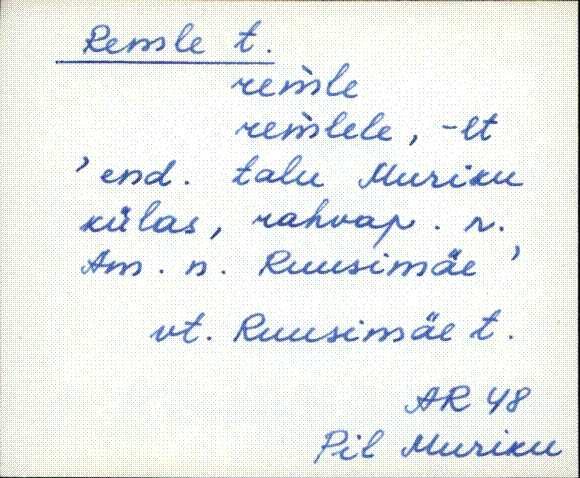 Remsle t.
rem̀sle
rem̀slele, -lt
’end. talu Muriku
külas, rahvap. n.
Am. n. Ruusimäe’
vt. Ruusimäe t.
AR 48
Pil Muriku